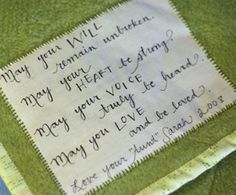 May your WILL
remain unbroken.
May your
HEART be strong?
May your VOICE
truly be heard.
May you LOVE
and be loved.
Love your "Aunt" Sarah 2008